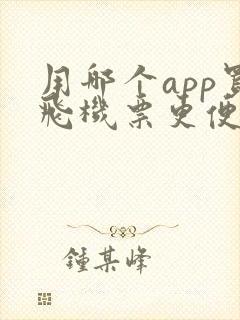 用哪个app買
飛機票更便
鍾某峰